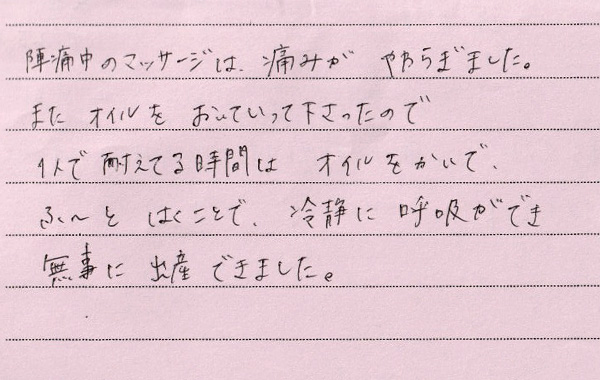 陣痛中のマッサージは、痛みが やわらぎました。
また オイルを おいていって下さったので
1人で 耐えてる時間は オイルをかいで、
ふぅ〜と はくことで、冷静に 呼吸ができ
無事に 出産できました。